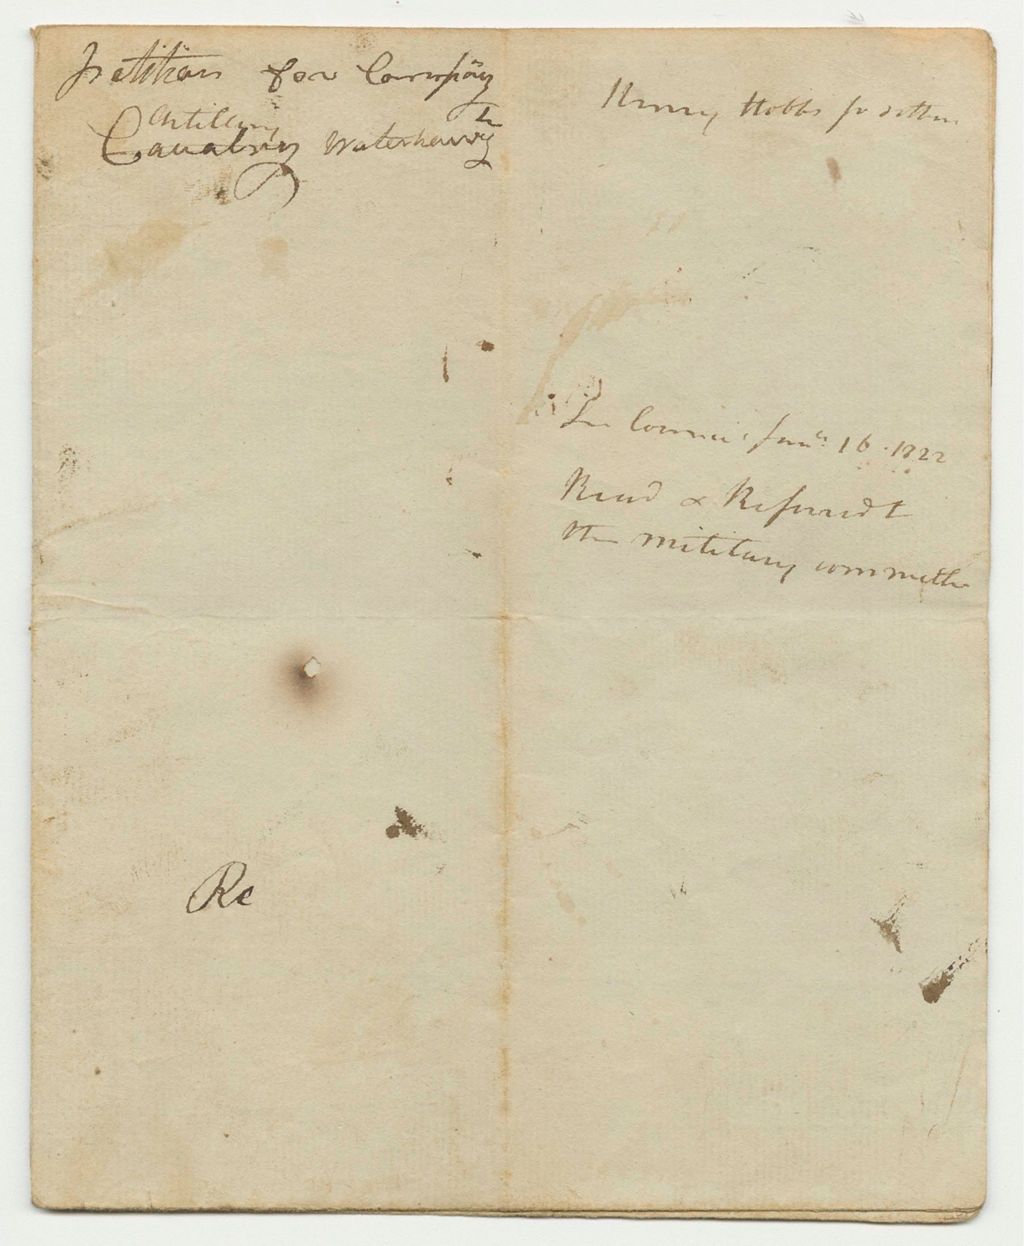 Petition for Company
Artillery
Cavalry Waterborough
Henry Hobbs Jr & others
In Council Jany. 16. 1822
Read & Referred t
the military committee
Re